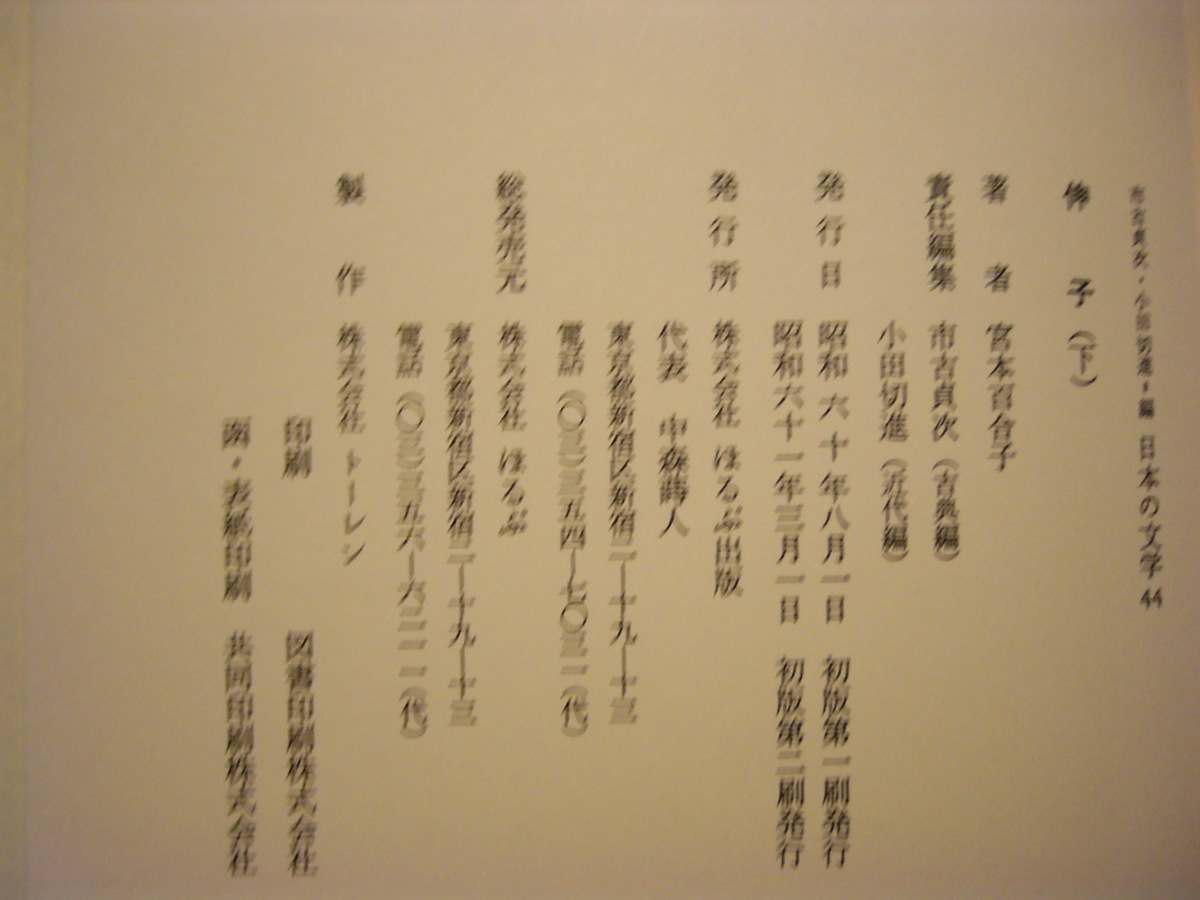 市古貞次・小田切進＝編 日本の文学 44
伸子（下）
著者 宮本百合子
責任編集 市古貞次（古典編）
小田切進（近代編）
発行日 昭和六十年八月一日 初版第一刷発行
昭和六十一年三月一日 初版第二刷発行
発行所 株式会社 ほるぷ出版
代表 中森蒔人
東京都新宿区新宿二―十九―十三
電話（〇三）三五四―七〇三一（代）
総発売元 株式会社 ほるぷ
東京都新宿区新宿二―十九―十三
電話（〇三）三五六―六二一一（代）
製作 株式会社 トーレン
印刷 図書印刷株式会社
函・表紙印刷 共同印刷株式会社